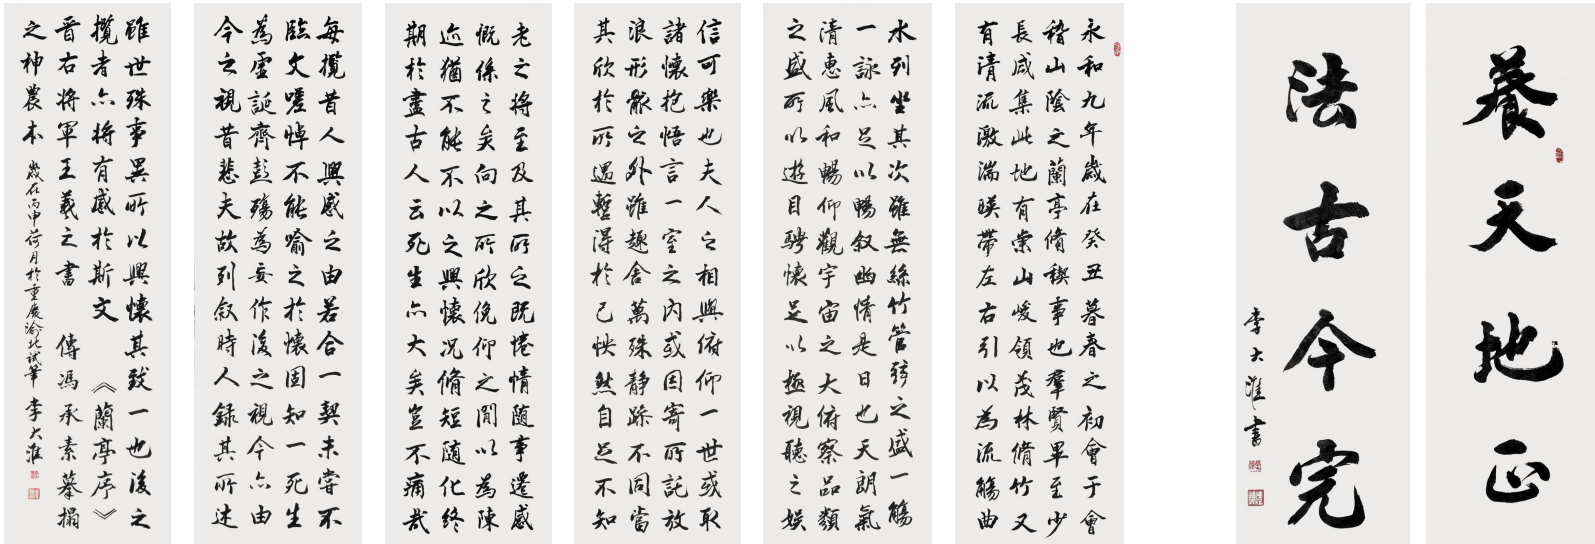 養天地正
法古今完
李大淮書
永和九年歲在癸丑暮春之初會于會
稽山陰之蘭亭脩禊事也羣賢畢至少
長咸集此地有崇山峻領茂林脩竹又
有清流激湍暎帶左右引以為流觴曲
水列坐其次雖無絲竹管弦之盛一觴
一詠亦足以暢叙幽情是日也天朗氣
清惠風和暢仰觀宇宙之大俯察品類
之盛所以遊目騁懷足以極視聽之娛
信可樂也夫人之相與俯仰一世或取
諸懷抱悟言一室之內或因寄所託放
浪形骸之外雖趣舍萬殊静躁不同當
其欣於所遇暫得於己怏然自足不知
老之将至及其所之既惓情随事遷感
慨係之矣向之所欣俛仰之間以為陳
迹猶不能不以之興懷况脩短随化終
期於盡古人云死生亦大矣豈不痛哉
每攬昔人興感之由若合一契未嘗不
臨文嗟悼不能喻之於懷固知一死生
為虛誕齊彭殤為妄作後之視今亦由
今之視昔悲夫故列叙時人録其所述
雖世殊事異所以興懷其致一也後之
攬者亦将有感於斯文 《蘭亭序》
晉右将軍王羲之書 傳馮承素摹搨
之神農本 歲在丙申荷月於重慶渝北試筆 李大淮